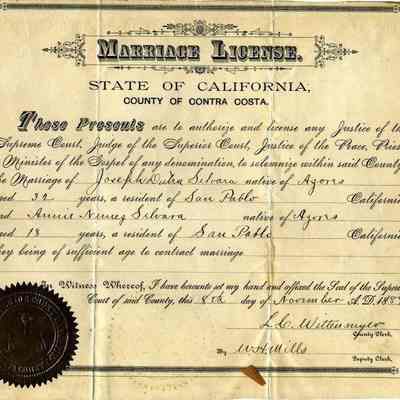 MARRIAGE LICENSE.
STATE OF CALIFORNIA,
COUNTY OF CONTRA COSTA.
These Presents are to authorize and license any Justice of the
Supreme Court, Judge of the Superior Court, Justice of the Peace, Pries
Minister of the Gospel of any denomination, to solemnize within said County
he Marriage of Joseph Dutra Silvara native of Azores
ed 32 years, a resident of San Pablo California
d Annie Nunes Silvara native of Azores
ed 18 years, a resident of San Pablo California
hey being of sufficient age to contract marriage
In Witness Whereof, I have hereunto set my hand and affixed the Seal of the Superio
Court of said County, this 8th day of November A.D. 188
L.C. Wittenmyer
County Clerk,
By W.H. Mills
Deputy Clerk.